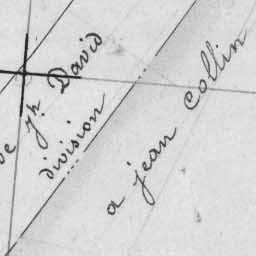 de Jh David
division
a jean collin